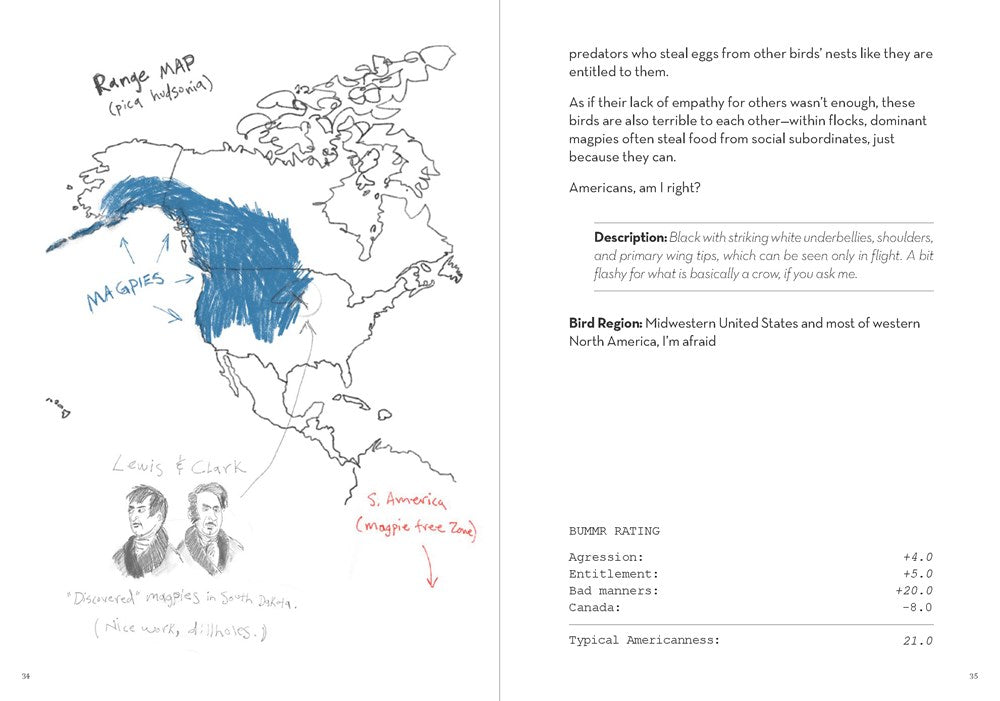 Range MAP
(pica hudsonia)
MAGPIES
Lewis & Clark
S. America
(magpie free zone)
"Discovered" magpies in South Dakota.
(Nice work, dillholes.)
34
predators who steal eggs from other birds' nests like they are
entitled to them.
As if their lack of empathy for others wasn't enough, these
birds are also terrible to each other—within flocks, dominant
magpies often steal food from social subordinates, just
because they can.
Americans, am I right?
Description: Black with striking white underbellies, shoulders,
and primary wing tips, which can be seen only in flight. A bit
flashy for what is basically a crow, if you ask me.
Bird Region: Midwestern United States and most of western
North America, I'm afraid
BUMMR RATING
Agression: +4.0
Entitlement: +5.0
Bad manners: +20.0
Canada: -8.0
Typical Americanness: 21.0
35